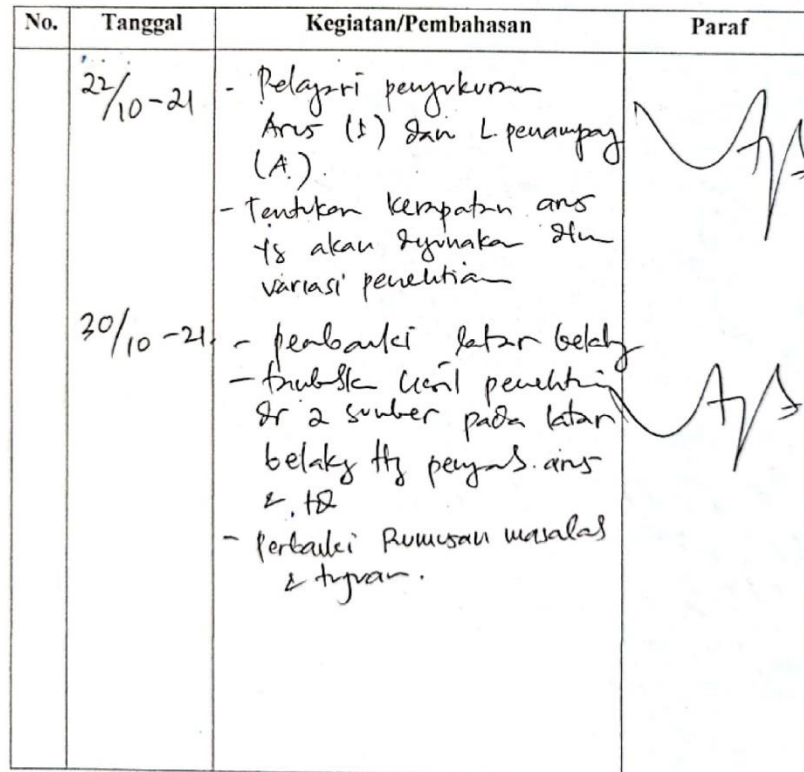 No. Tanggal Kegiatan/Pembahasan Paraf
22/10-21 - Pelajari pengukuran
Arus (I) dan L. penampang
(A).
- Tentukan kerapatan arus
yg akan digunakan dlm
variasi penelitian
30/10-21 - perbaiki latar belakg
- hasil penelitian
dr 2 sumber pada latar
belakg ttg arus
&
- Perbaiki Rumusan masalah
& tujuan.